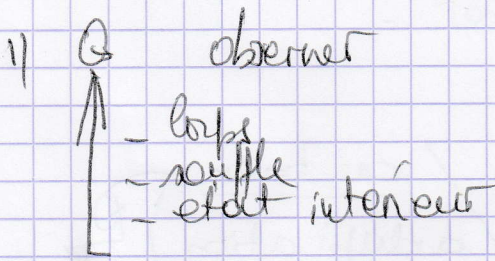 1) observer
- corps
- souffle
- état intérieur